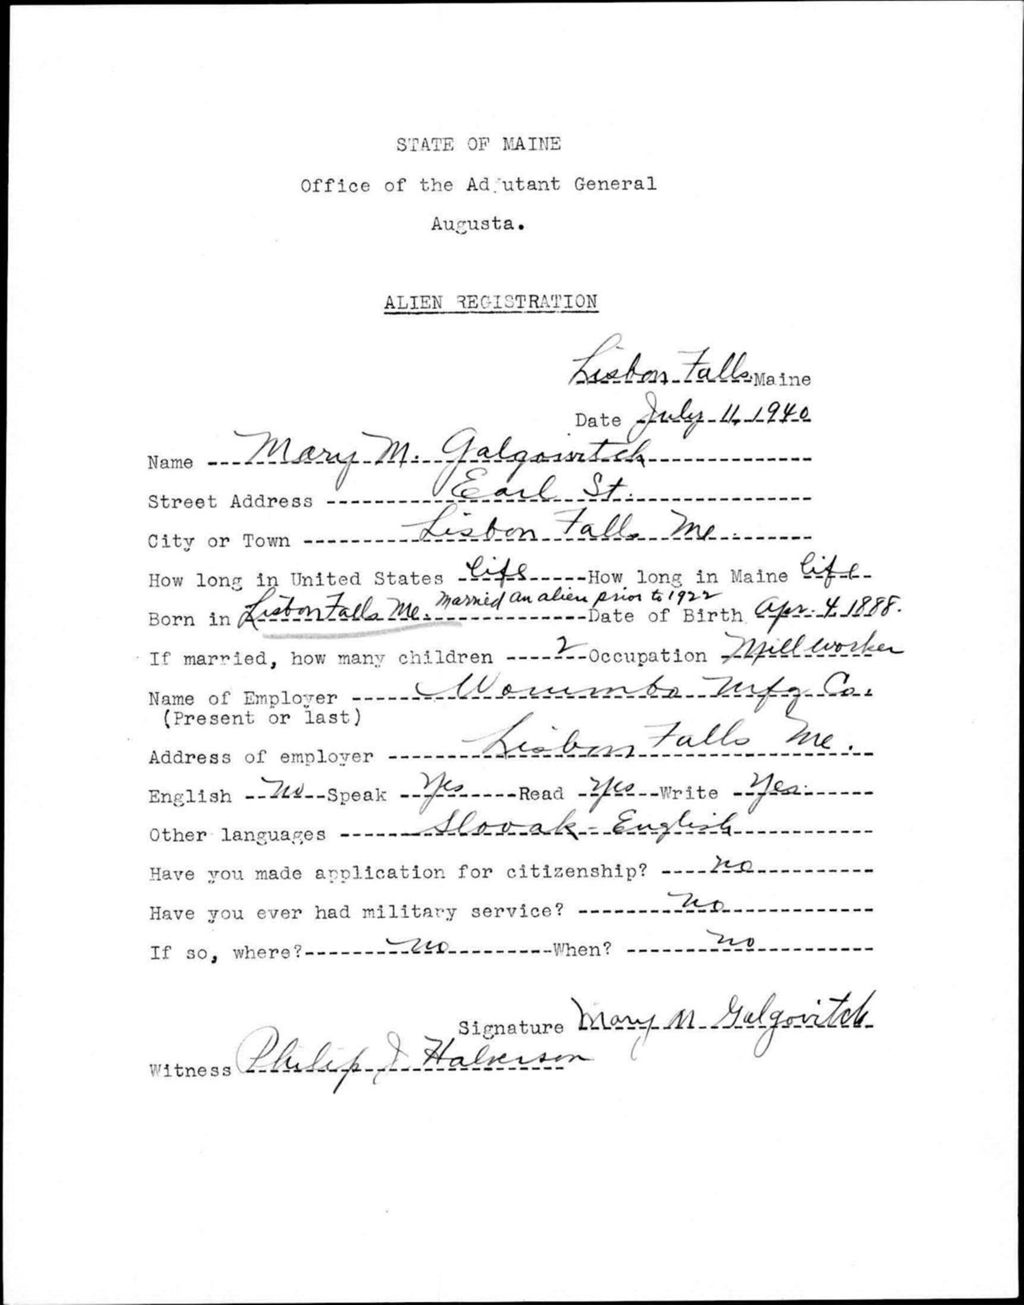 STATE OF MAINE
Office of the Adjutant General
Augusta.
ALIEN REGISTRATION
Lisbon Falls Maine
Date July 11, 1940
Name Mary M. Galgovitch
Street Address Earl St.
City or Town Lisbon Falls Me.
How long in United States life How long in Maine life
Born in Lisbon Falls Me. Married an alien prior to 1922 Date of Birth Apr. 4, 1888.
If married, how many children 2 Occupation Mill worker
Name of Employer Worumbo Mfg Co.
(Present or last)
Address of employer Lisbon Falls Me.
English No Speak Yes Read Yes Write Yes
Other languages Slovak - English
Have you made application for citizenship? no
Have you ever had military service? no
If so, where? no When? no
Signature Mary M Galgovitch
Witness Philip J Halverson